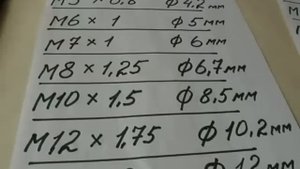 M5 × 0,8 Ф 4,2 мм
M6 × 1 Ф 5 мм
M7 × 1 Ф 6 мм
M8 × 1,25 Ф 6,7 мм
M10 × 1,5 Ф 8,5 мм
M12 × 1,75 Ф 10,2 мм
Ф 12 мм